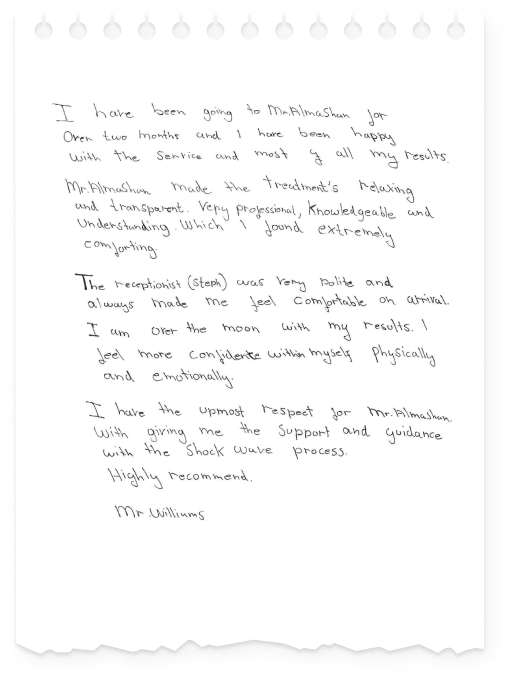 I have been going to Mr.Almashan for
Over two months and I have been happy
with the service and most of all my results.
Mr.Almashan made the treatment's relaxing
and transparent. Very professional, Knowledgeable and
Understanding. Which I found extremely
comforting.
The receptionist (Steph) was very polite and
always made me feel comfortable on arrival.
I am over the moon with my results. I
feel more confidente within myself physically
and emotionally.
I have the upmost respect for Mr.Almashan.
With giving me the support and guidance
with the shock wave process.
Highly recommend.
Mr.Williams